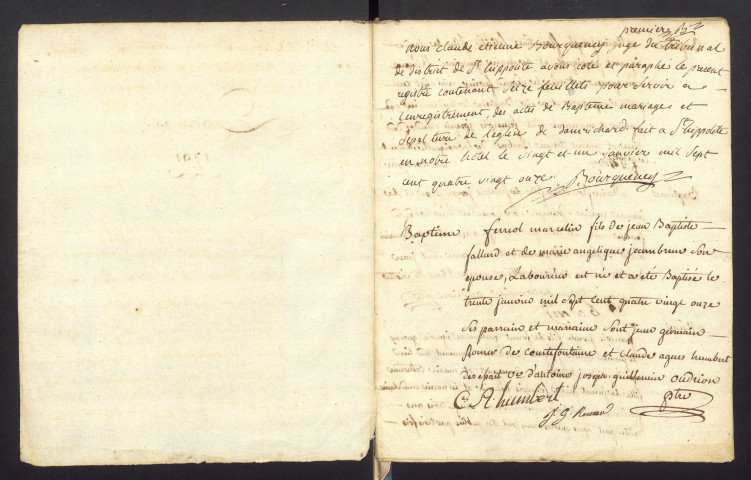 premier
nous claude etienne Bourqueney juge du tribunal
de district de St hippolite avons coté et paraphé le present
registre contenant seize feuillets pour servir a
lenregistrement des actes de Baptême mariage et
sepulture de leglise de damrichard fait a St hippolite
en notre hôtel le vingt et un janvier mil sept
cent quatre vingt onze Bourqueney
Baptême ferriol marcelin fils de jean Baptiste
fallard et de marie angelique jeambrun son
epouse, Laboureur est né et a eté Baptisé le
trente janvier mil sept cent quatre vingt onze
ses parrain et maraine sont jean germain
Romer de courtefontaine et claude agnes humbert
des ve d'antoine joseph guillemin oudrion
C A humbert j G ptre
1791